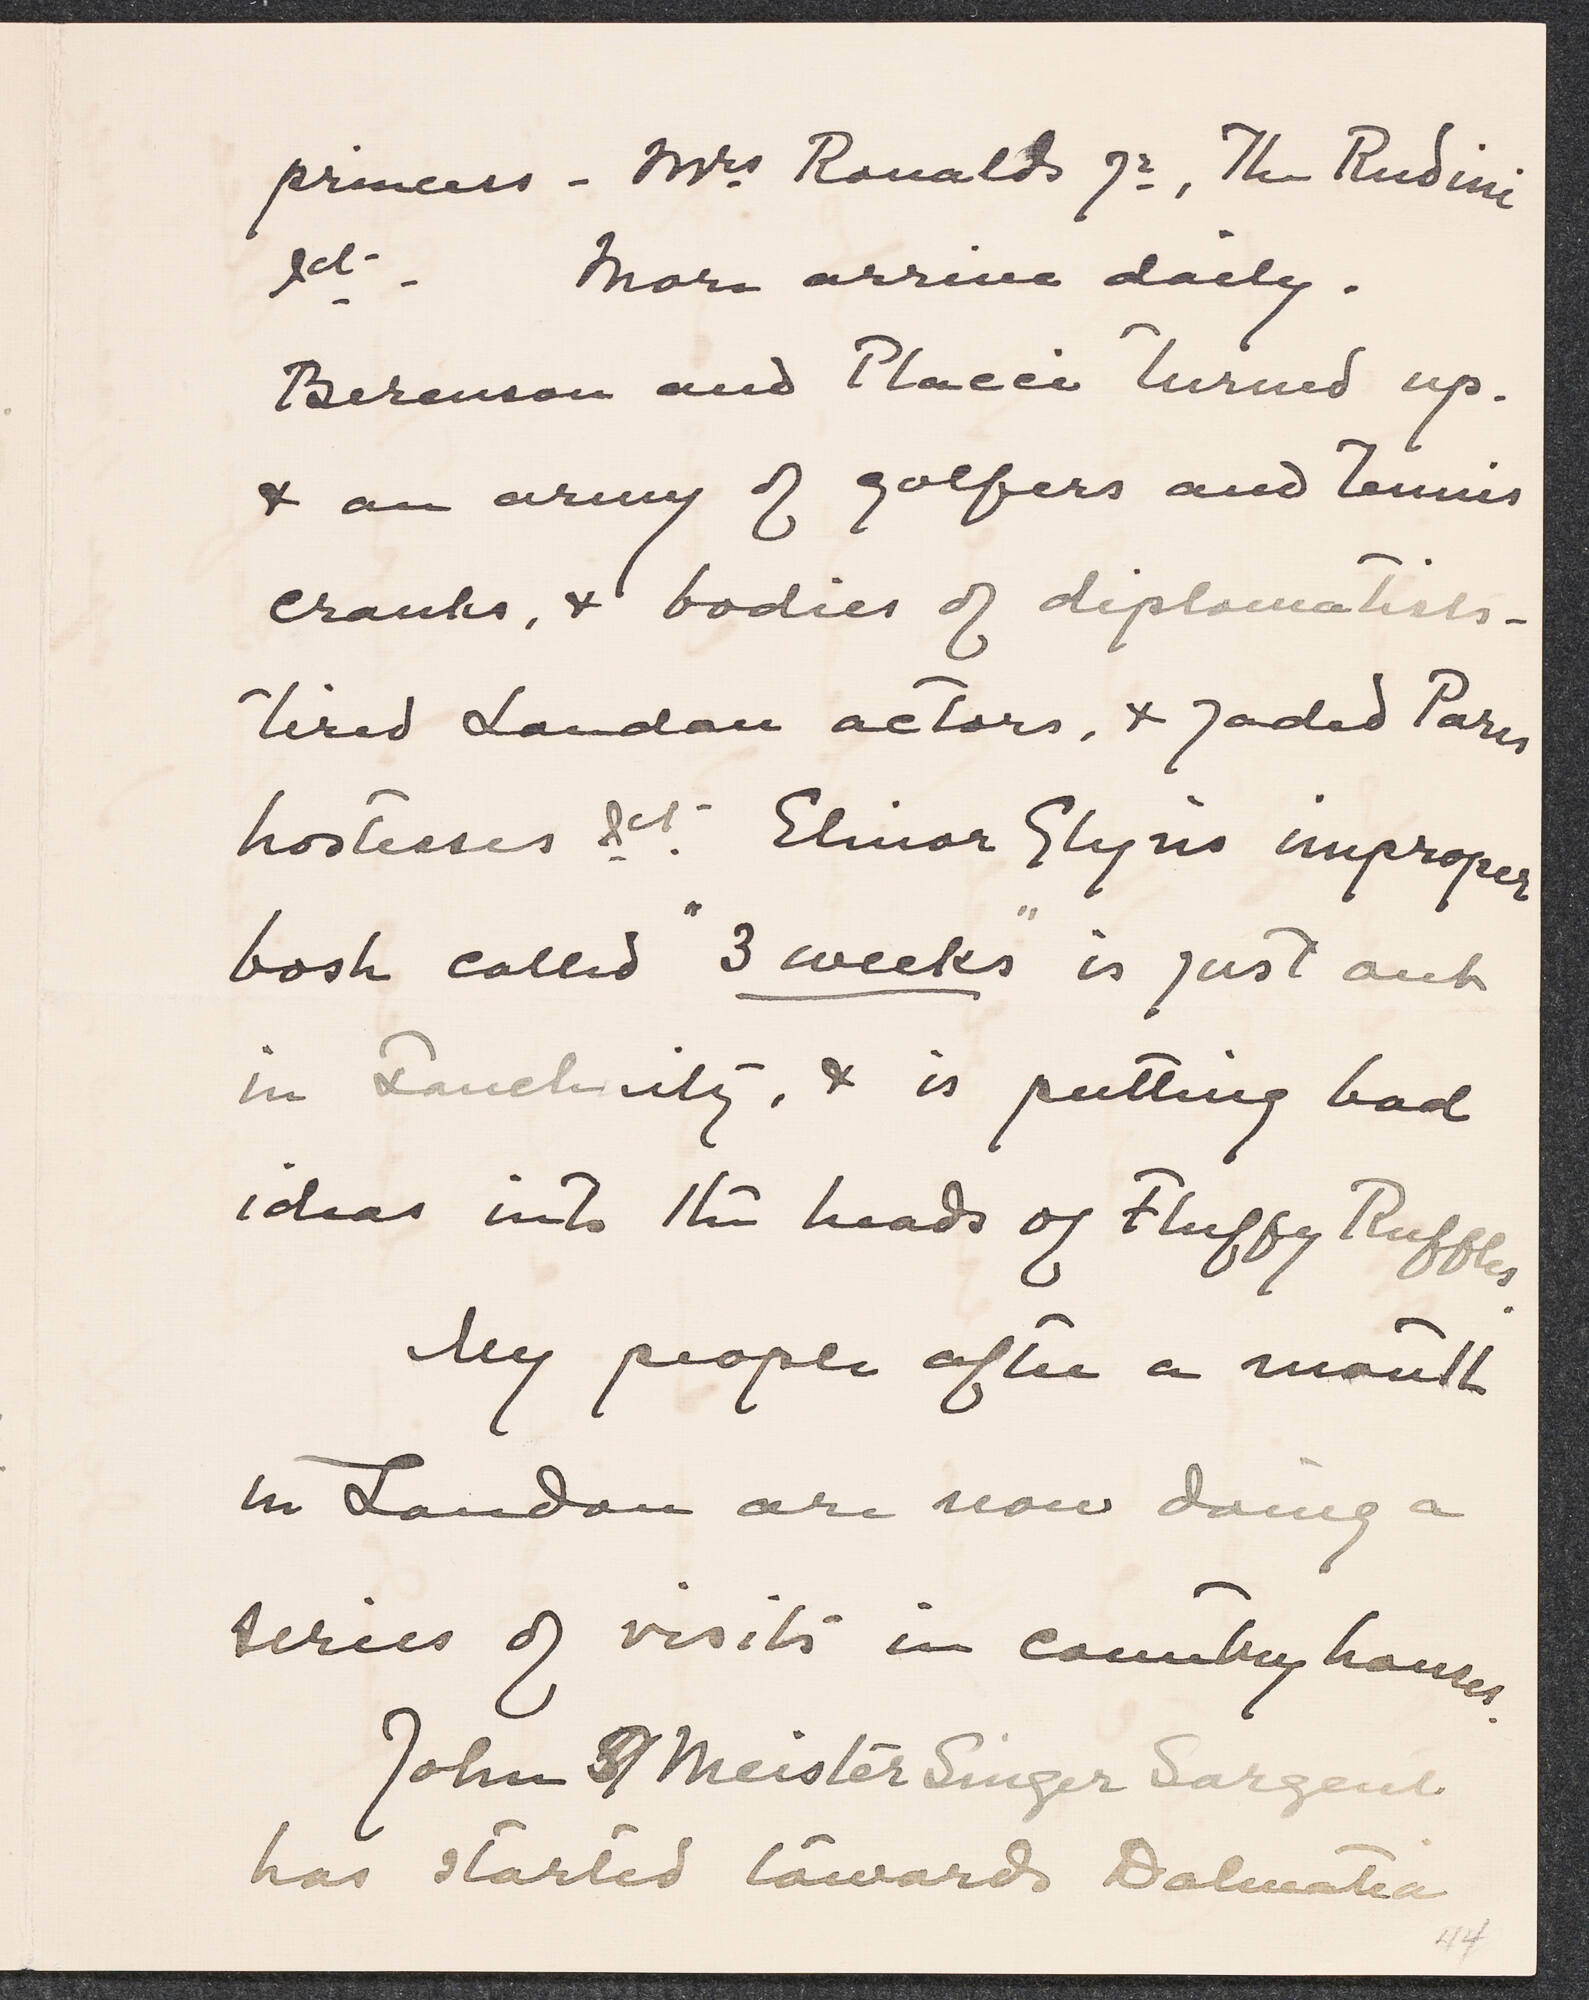 princess - Mrs Ronalds Jr, The Rudini
&ct - . More arrive daily.
Berenson and Placci turned up.
& an army of golfers and tennis
cranks, & bodies of diplomatists -
tired London actors, & jaded Paris
hostesses &ct. Elinor Glyn's improper
bosh called "3 weeks" is just out
in Tauchnitz, & is putting bad
ideas into the heads of Fluffy Ruffles.
My people after a month
in London are now doing a
series of visits in country houses.
John Meister Singer Sargent
has started towards Dalmatia
44